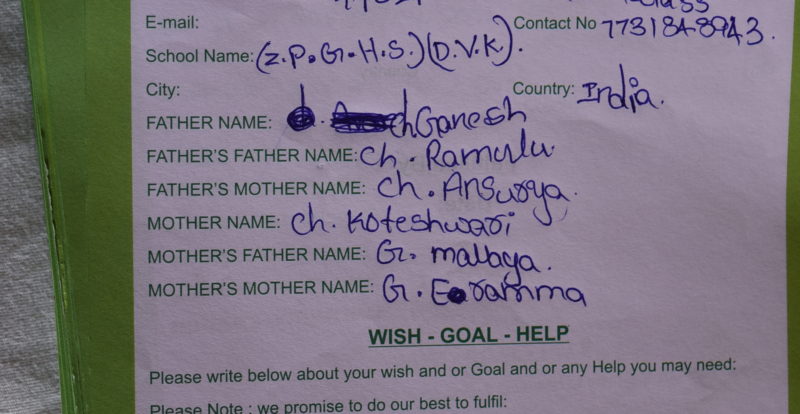 class
E-mail: Contact No 7731848943.
School Name: (Z.P.G.H.S.)(D.V.K).
City: Country: India.
FATHER NAME: ch Ganesh
FATHER'S FATHER NAME: ch. Ramulu
FATHER'S MOTHER NAME: ch. Ansurya.
MOTHER NAME: ch. Koteshwari
MOTHER'S FATHER NAME: G. mallaya.
MOTHER'S MOTHER NAME: G. Eramma
WISH - GOAL - HELP
Please write below about your wish and or Goal and or any Help you may need:
Please Note : we promise to do our best to fulfil: